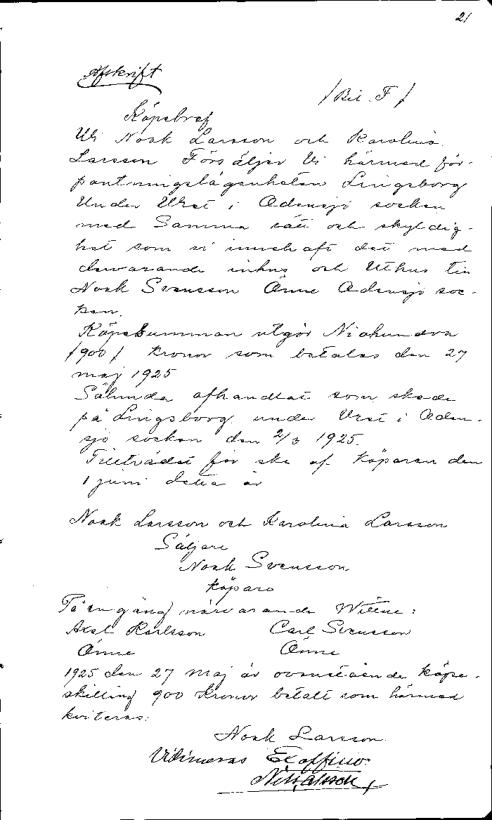 21
Afskrift
/Bil. F/
Köpebref
Vi Noak Larsson och Karolina
Larsson Försäljer Vi härmed för-
pantningslägenheten Lingsborg
Under Uret i Ödensjö socken
med Samma rätt och skyldig-
het som vi innehaft det med
därvarande inhus och Uthus till
Noak Svensson Änne Ödensjö soc-
ken.
Köpesumman utgör Niohundra
/900/ kronor som betalas den 27
maj 1925
Sålunda afhandlat som skede
på Lingsborg under Uret i Öden-
sjö socken den 2/3 1925.
Tillträdet får ske af köparen den
1 juni detta år
Noak Larsson och Karolina Larsson
Säljare
Noak Svensson
Köpare
På en gång närvarande Wittne:
Axel Karlsson Carl Svensson
Änne Änne
1925 den 27 Maj är ovanstående köpe-
skilling 900 kronor betalt som härmed
kviteras:
Noak Larsson
Vidimeras Ex officio: